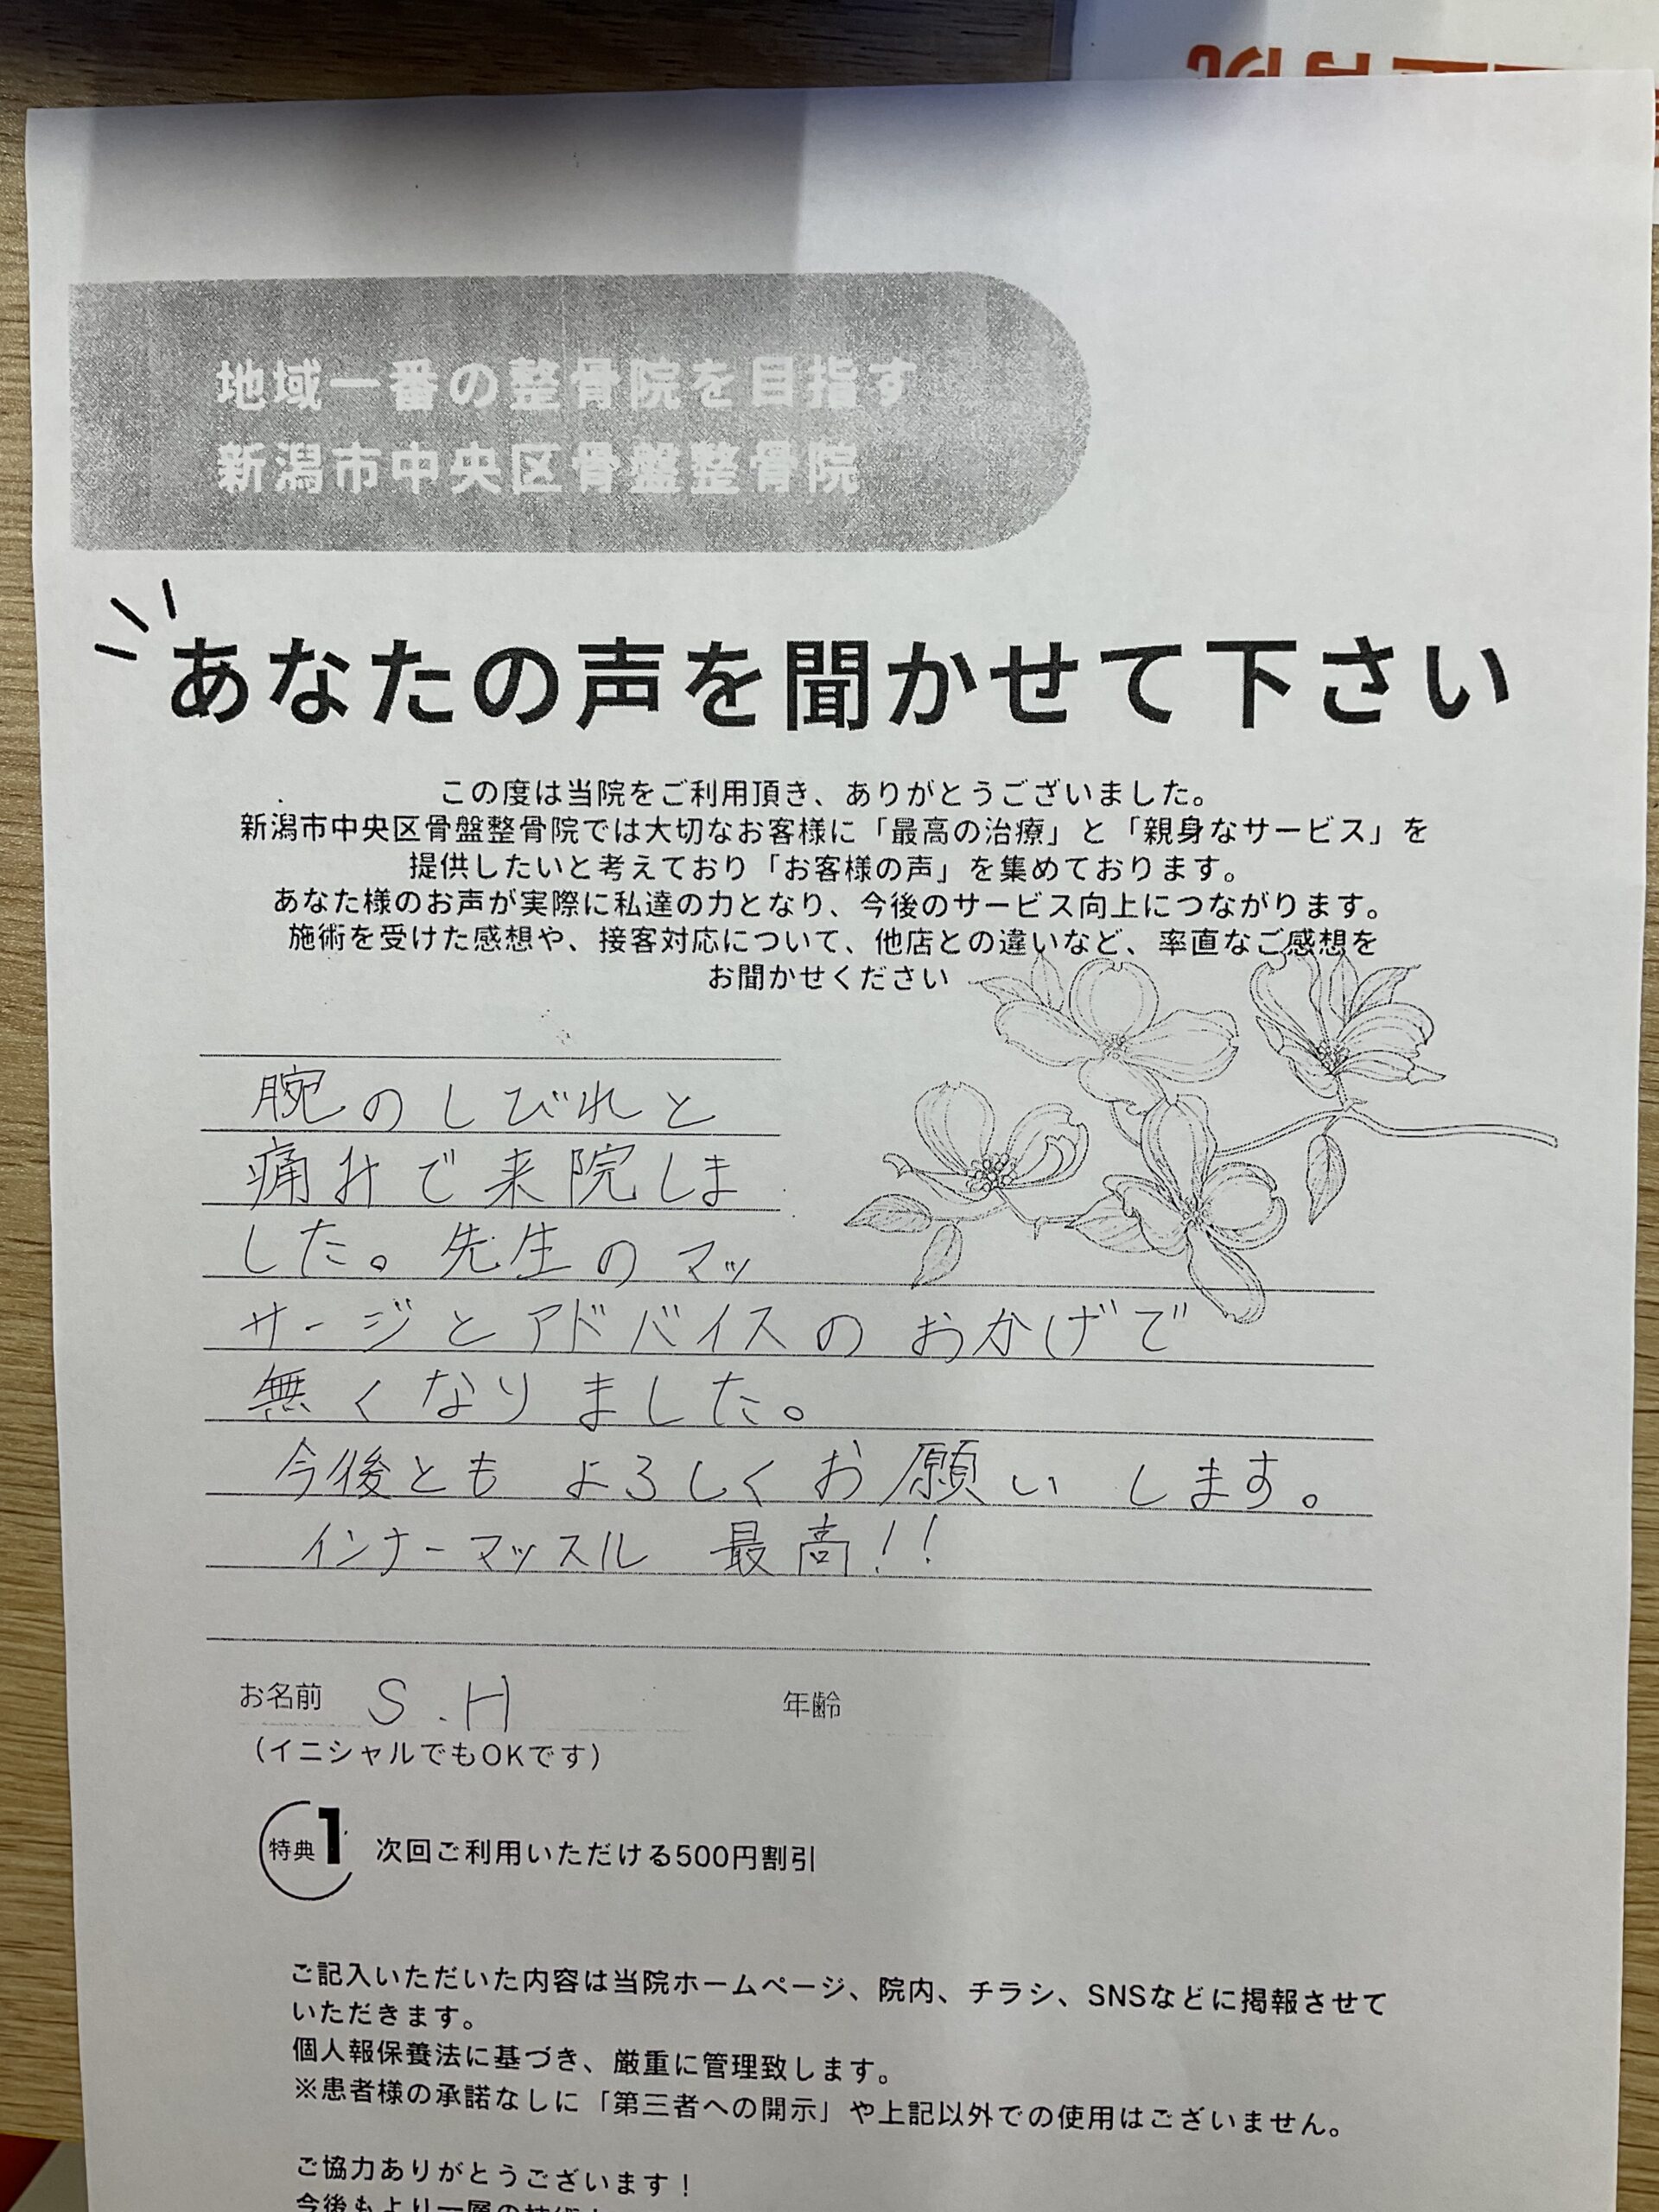 地域一番の整骨院を目指す
新潟市中央区骨盤整骨院
あなたの声を聞かせて下さい
この度は当院をご利用頂き、ありがとうございました。
新潟市中央区骨盤整骨院では大切なお客様に「最高の治療」と「親身なサービス」を
提供したいと考えており「お客様の声」を集めております。
あなた様のお声が実際に私達の力となり、今後のサービス向上につながります。
施術を受けた感想や、接客対応について、他店との違いなど、率直なご感想を
お聞かせください
腕のしびれと
痛みで来院しま
した。先生のマッ
サージとアドバイスのおかげで
無くなりました。
今後とも よろしくお願いします。
インナーマッスル 最高!!
お名前 S.H 年齢
（イニシャルでもOKです）
特典1 次回ご利用いただける500円割引
ご記入いただいた内容は当院ホームページ、院内、チラシ、SNSなどに掲報させて
いただきます。
個人報保養法に基づき、厳重に管理致します。
※患者様の承諾なしに「第三者への開示」や上記以外での使用はございません。
ご協力ありがとうございます！
今後もより一層の